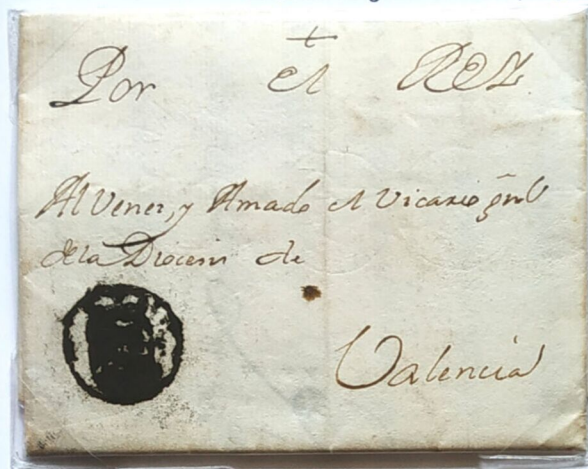 Por el REY
Al Vener, y Amado el Vicario gnl
de la Diocesis de
Valencia